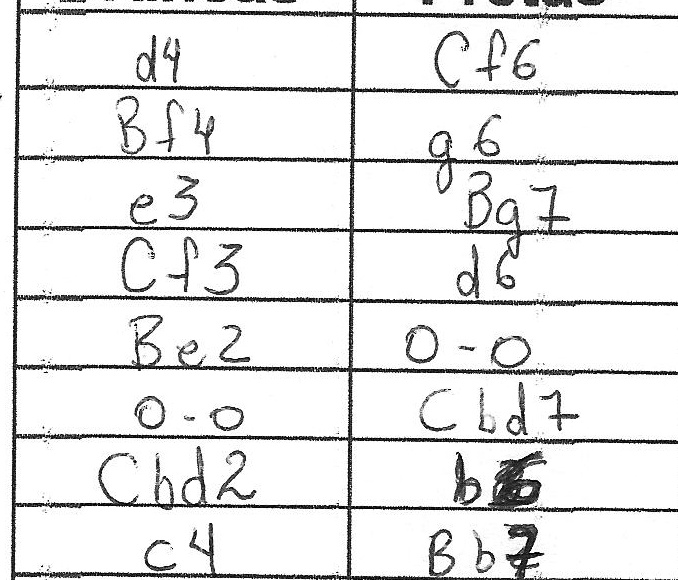 d4 Cf6
Bf4 g6
e3 Bg7
Cf3 d6
Be2 0-0
0-0 Cbd7
Cbd2 b6
c4 Bb7